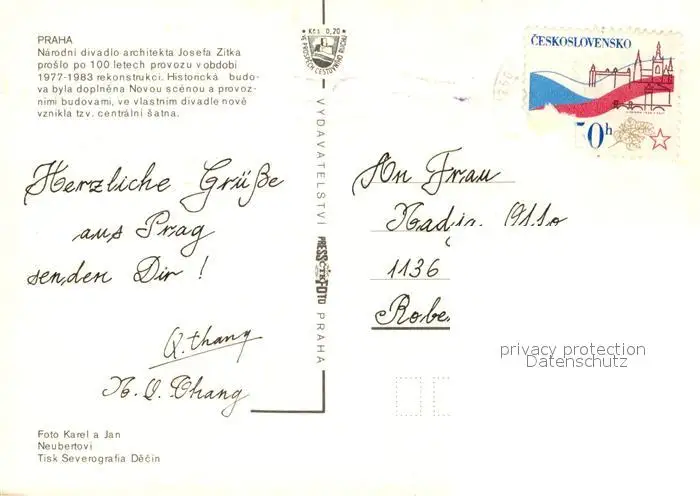 PRAHA
Národní divadlo architekta Josefa Zítka
prošlo po 100 letech provozu v období
1977-1983 rekonstrukcí. Historická budo-
va byla doplněna Novou scénou a provoz-
ními budovami, ve vlastním divadle nově
vznikla tzv. centrální šatna.
Herzliche Grüße
aus Prag
senden Dir !
Q.thang
N. Q. Thang
Foto Karel a Jan
Neubertovi
Tisk Severografia Děčín
Kčs 0,20
VYDAVATELSTVÍ PRESSFOTO PRAHA
ČESKOSLOVENSKO
50h
An Frau
Nadja
1136
Robe
privacy protection
Datenschutz